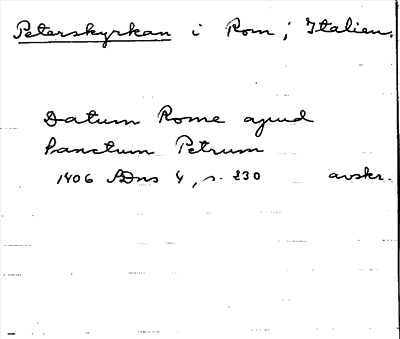 Peterskyrkan i Rom, Italien.
Datum Rome apud
Sanctum Petrum
1406 SDns 4, s. 230 avskr.